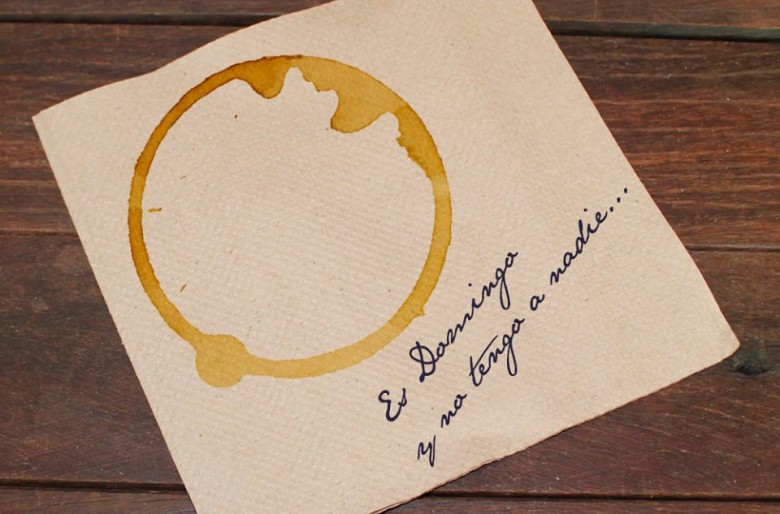 Es Domingo
y no tengo a nadie...